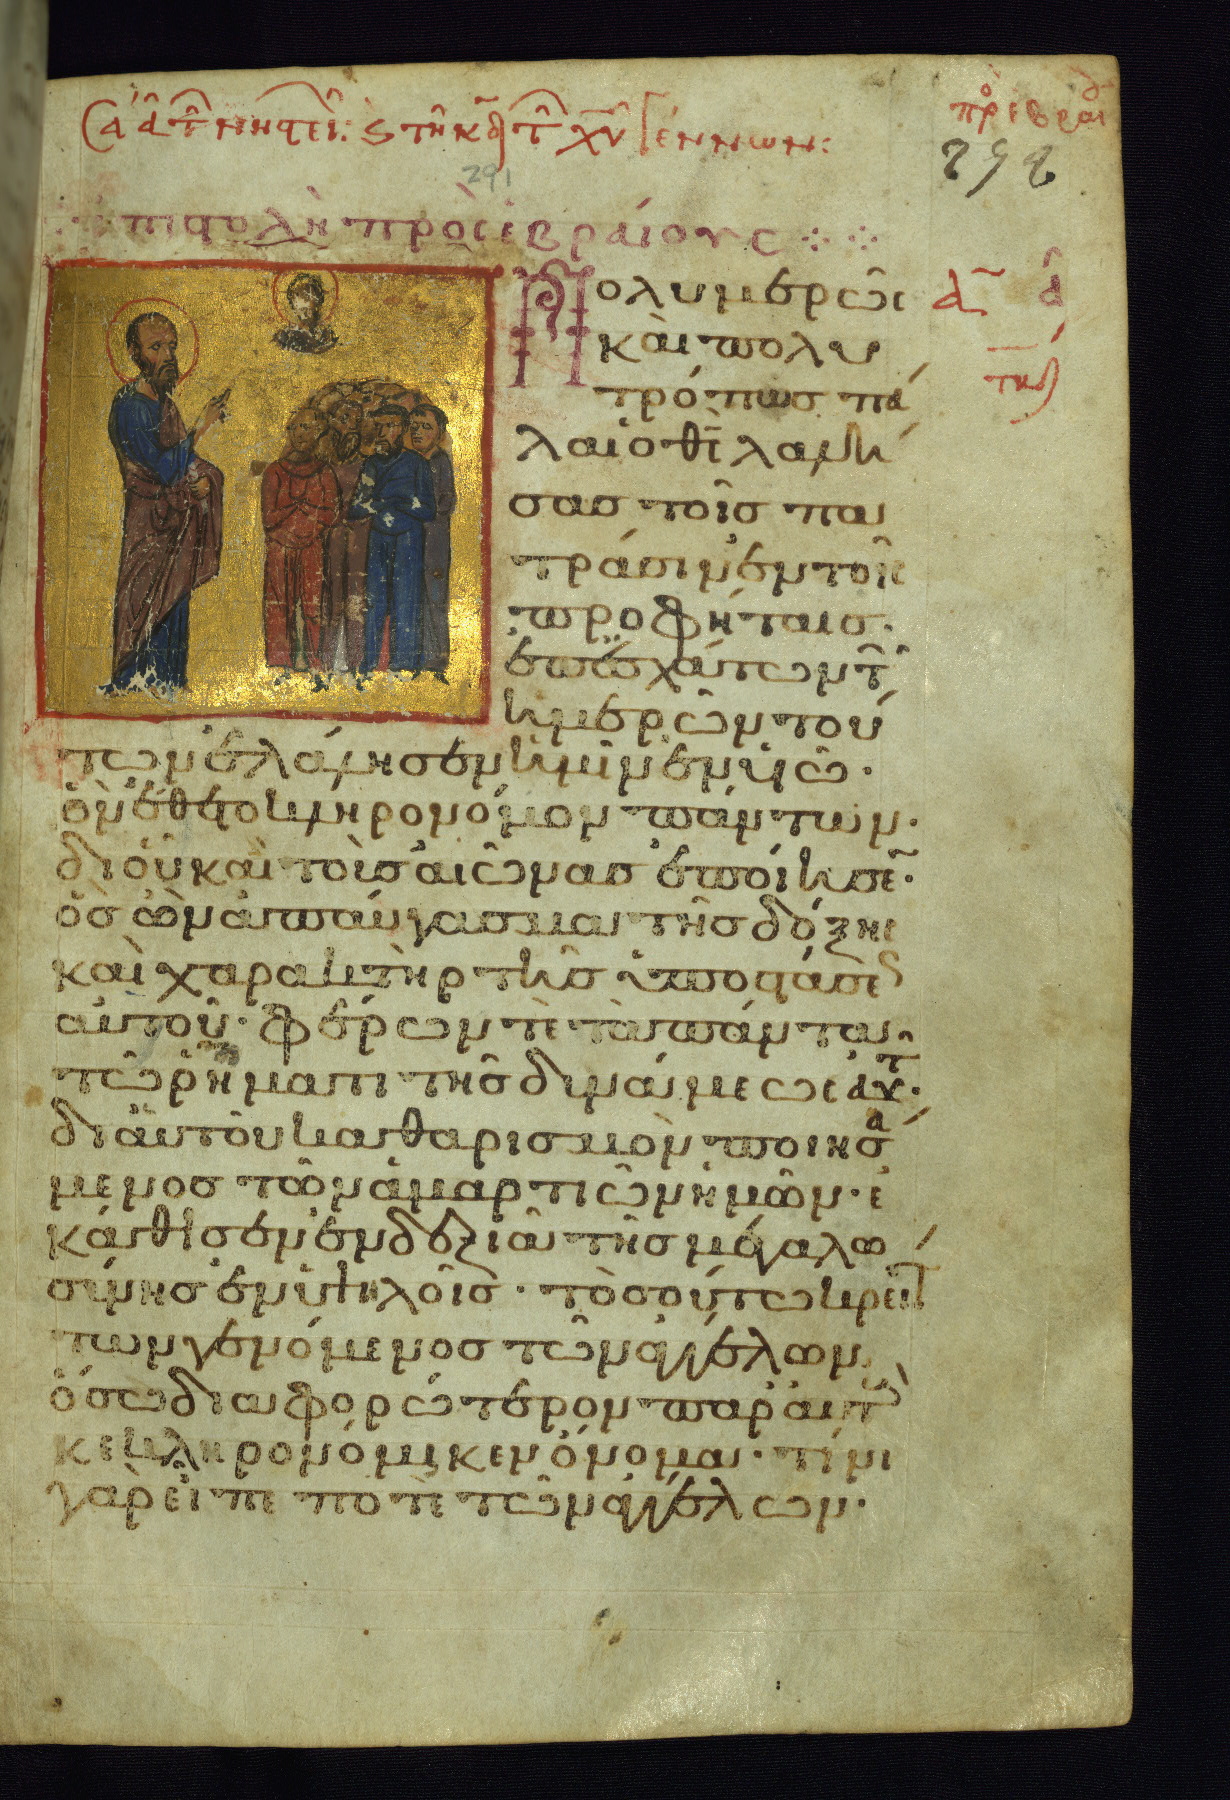 291
292
ἐπιστολὴ πρὸς ἑβραίους
Πολυμερῶς
καὶ πολυ
τρόπως πά
λαι ὁ θς λαλή
σας τοῖς πα
τράσιν ἐν τοῖς
προφήταις·
ἐπ' ἐσχάτων τῶν
ἡμερῶν του
των ἐλάλησεν ἡμῖν ἐν υἱῷ·
ὃν ἔθετο κληρονόμον πάντων·
δι οὗ καὶ τοὺς αἰῶνας ἐποίησεν·
ὃς ὢν ἀπαύγασμα τῆς δόξης
καὶ χαρακτὴρ τῆς ὑποστάσεως
αὐτοῦ· φέρων τὲ τὰ πάντα
τῶ ρήματι τῆς δυνάμεως αὐτοῦ·
δι ἑαυτοῦ καθαρισμὸν ποιησά
μενος τῶν ἁμαρτιῶν ἡμῶν· ἐ
κάθισεν ἐν δεξιᾶ τῆς μεγαλω
σύνης ἐν ὑψηλοῖς· τοσούτω κρείτ
των γενόμενος τῶν ἀγγέλων
ὅσω διαφορώτερον παρ' αὐτοὺς
κεκληρονόμηκεν ὄνομα· τίνι
γὰρ εἶπέ ποτε τῶν ἀγγέλων·